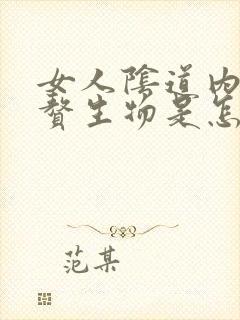 女人陰道内
贅生物是怎
范某